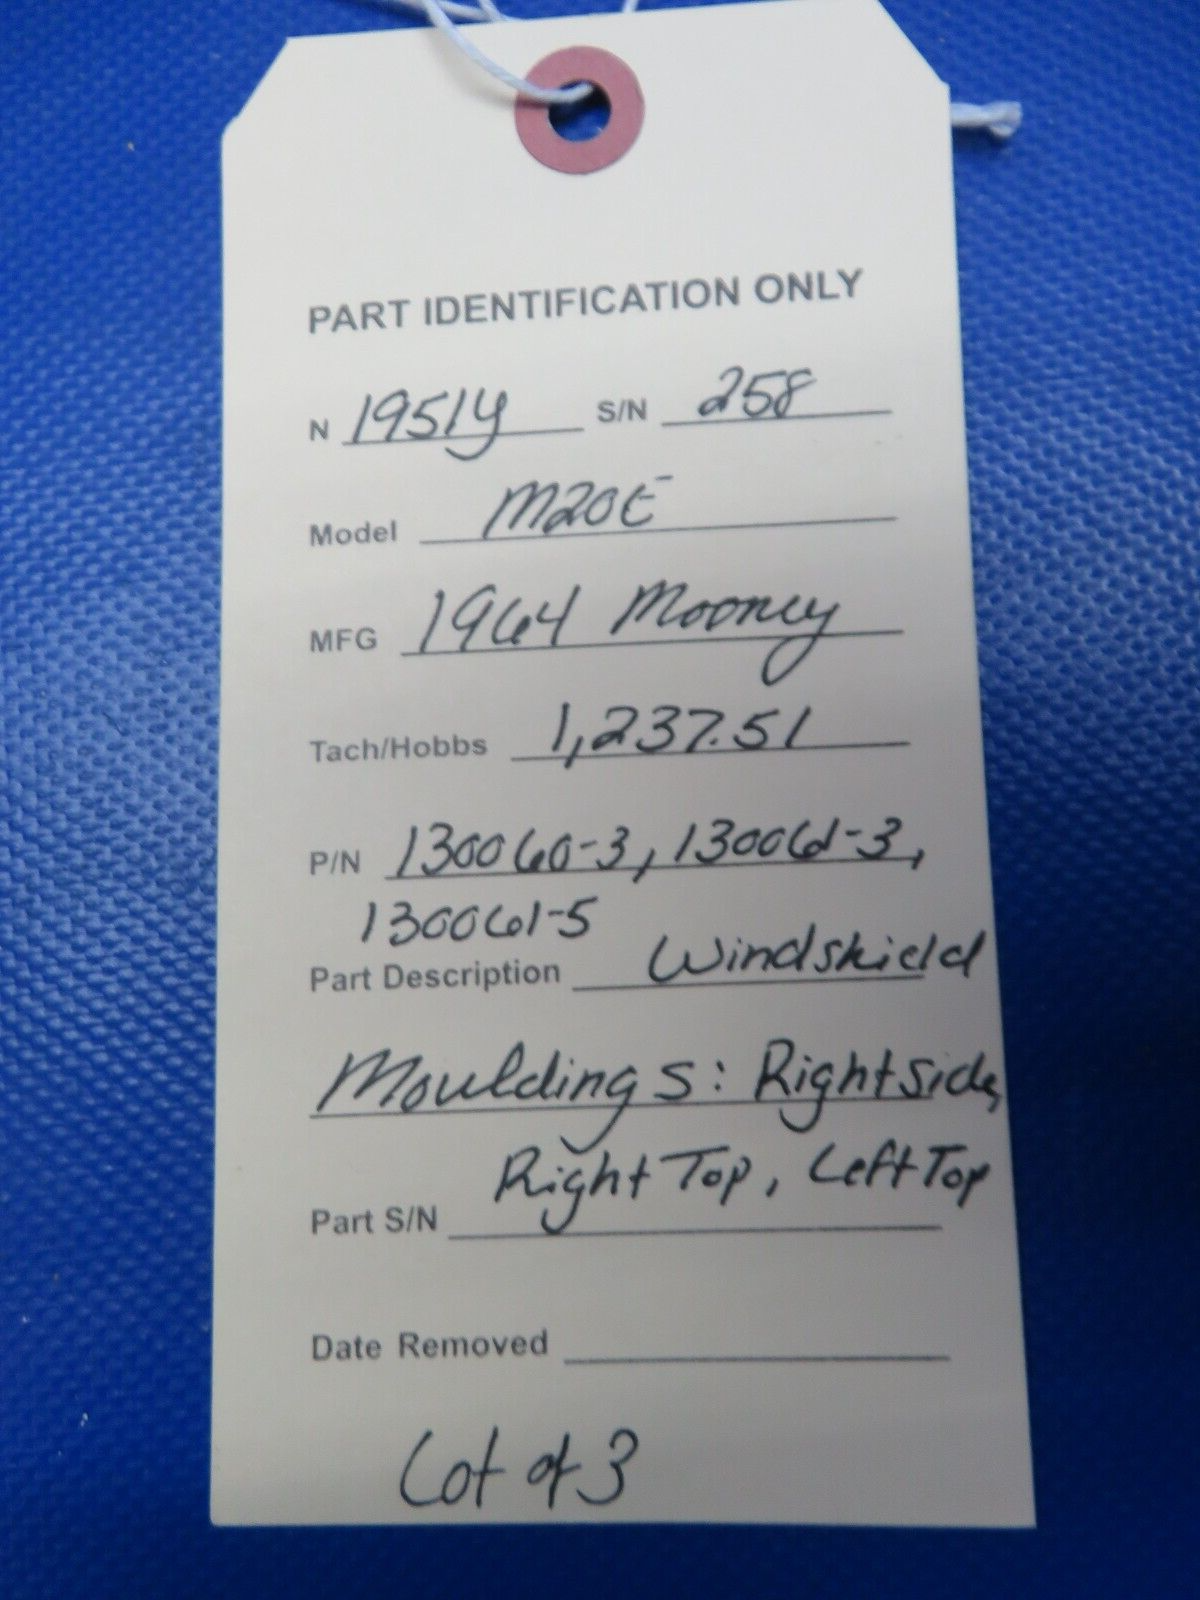 PART IDENTIFICATION ONLY
N 1951Y S/N 258
Model M20E
MFG 1964 Mooney
Tach/Hobbs 1,237.51
P/N 130060-3, 130061-3,
130061-5
Part Description Windshield
Mouldings: Right Side,
Right Top, Left Top
Part S/N
Date Removed
Lot of 3